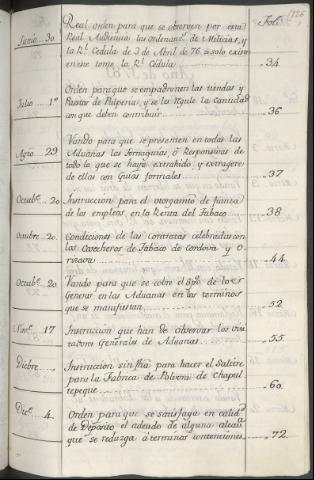 Fols. 126
Junio.. 30. Real orden para que se observen por esta
Real Audiencia las ordenanzs. de Milicias, y
la Rl. Cedula de 3 de Abril de 76. a solo existe
en este tomo la Rl. Cedula 34
Julio.. 1º Orden para que se empadronen las tiendas y
Puestos de Pulperia, y se les regule la cantidad
con que deven contribuir 36
Agto. 29 Vando para que se presenten en todas las
Aduanas las Tornaguias, ó Responsivas de
todo lo que se haya extrahido, y extragere
de ellas con Guias formales 37
Octube. 20. Instruccion para el otorgamto. de fianza
de los empleos en la Renta del Tabaco 38
Octubre. 20. Condiciones de las contratas celebradas con
los Cosecheros de Tabaco de Cordova y O-
risava 44
Octube. 20. Vando para que se cobre el de los
Generos en las Aduanas en los terminos
que se manifiestan 52
Nove. 17 Instruccion que han de observar los Visi
tadores Generales de Aduanas 55
Dicbre. Instruccion sin fha. para hacer el Salitre
para la Fabrica de Polvora de Chapul
tepeque 60
Dice. 4. Orden para que se satisfaga en calidd.
de Deposito el adeudo de alguna alcava.
que se reduzga á terminos contenciosos 72